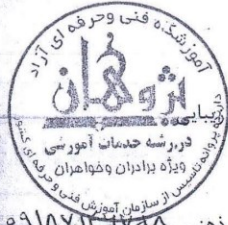 آموزشگاه فنی و حرفه ای آزاد
پژوهان
در رشته خدمات آموزشی
ویژه برادران وخواهران
دارای پروانه تاسیس از سازمان آموزش فنی و حرفه ای کشور
زیبایی